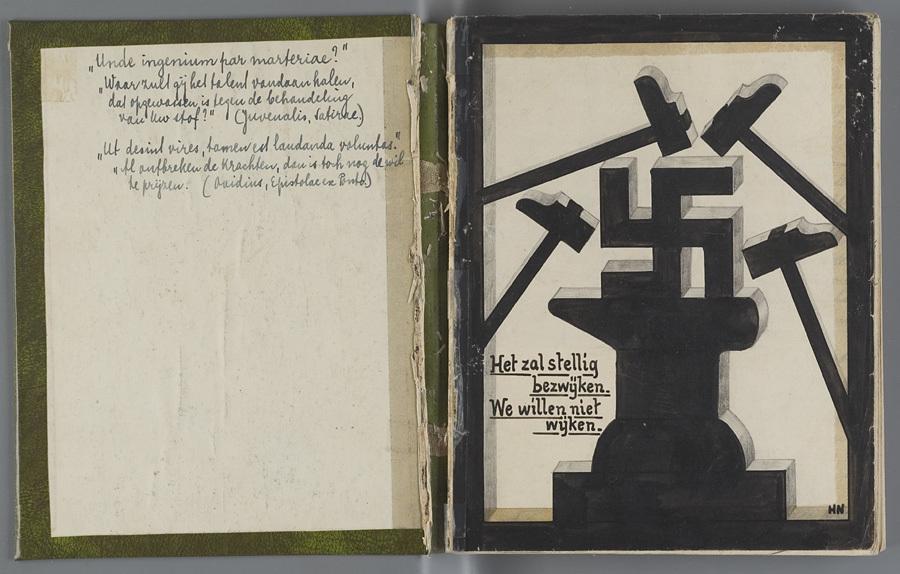 „Unde ingenium par marteriae?"
„Waar zult gij het talent vandaan halen,
dat opgewassen is tegen de behandeling
van Uw stof?" (Juvenalis, Satirae.)
„Ut desint vires, tamen est laudanda voluntas."
„Al ontbreken de krachten, dan is toch nog de wil
te prijzen. (Ovidius, Epistolae ex Ponto)
Het zal stellig
bezwijken.
We willen niet
wijken.
HN